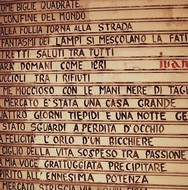 ME BIGLIE QUADRATE
CONFINE DEL MONDO
ALLA FOLLIA TORNO ALLA STRADA
FANTASMI DEI LAMPI SI MESCOLANO LE FATI
TUTTI SALUTI TRA TUTTI
SARÀ DOMANI COME IERI
juan
UCCIOLI TRA I RIFIUTI
ME MOCCIOSO CON LE MANI NERE DI TAGLI
MERCATO È STATA UNA CASA GRANDE
ATTRO GIORNI TIEPIDI E UNA NOTTE GE
STATO SGUARDI A PERDITA D'OCCHIO
FELICITÀ L'ORLO D'UN BICCHIERE
LIGUIO DELLA VITA SOSPESO TRA PASSIONE
A MIA VOCE GRATTUGGIATA PRECIPITARE
SPIRITO ALL'ENNESIMA POTENZA
MERCATO STRISCIA